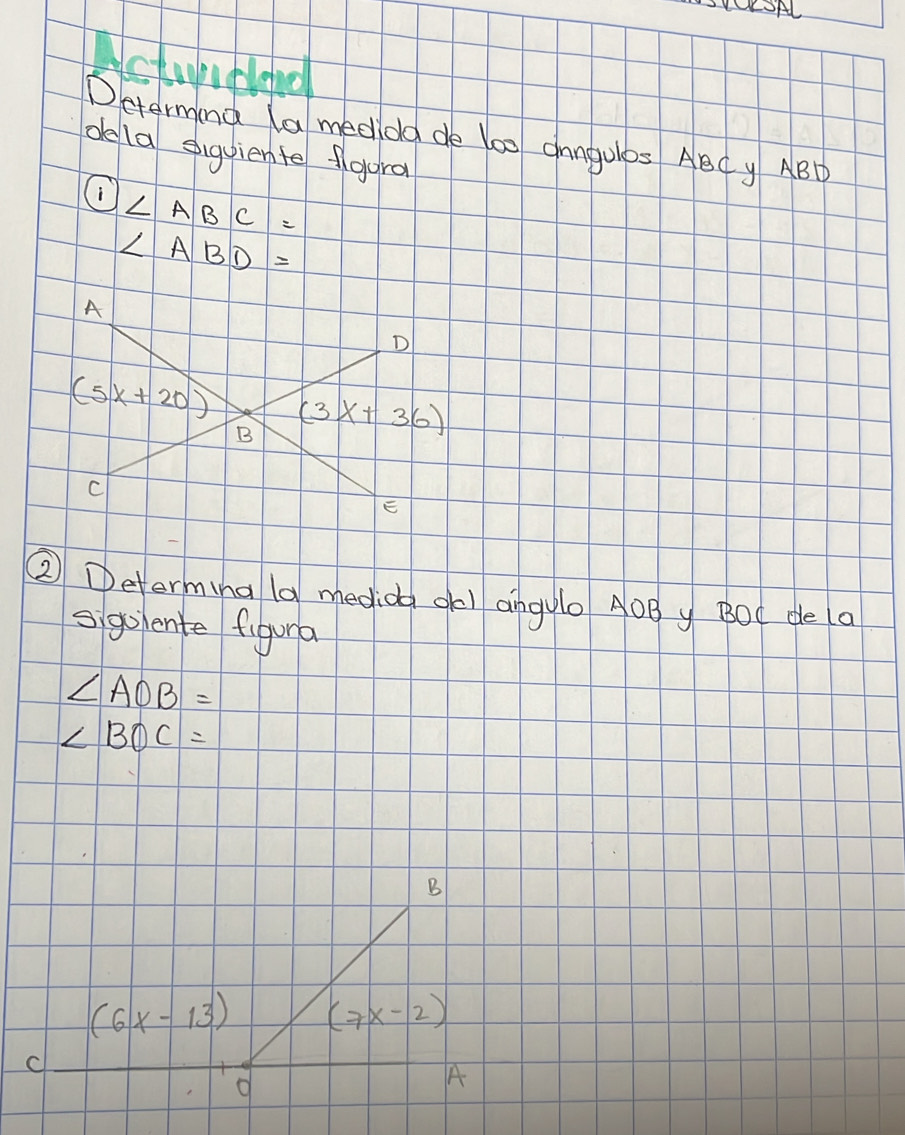 Actividad
Determina la medida de los ánngulos ABC y ABD
dela siguiente figura
① ∠ ABC =
∠ ABD =
A
D
(5x+20)
(3x+36)
B
C
E
② Determina la medida del ángulo AOB y BOC de la
siguiente figura
∠AOB =
∠BOC =
B
(6x-13)
(7x-2)
C
O
A